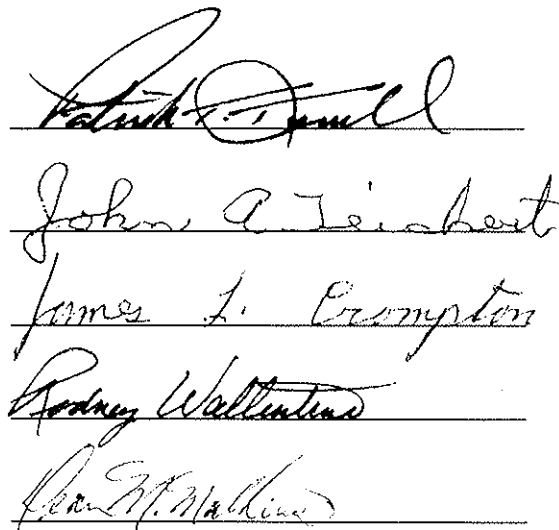 Patrick T.
John A. Teichert
James L. Crompton
Rodney Wallentine
Dean M.